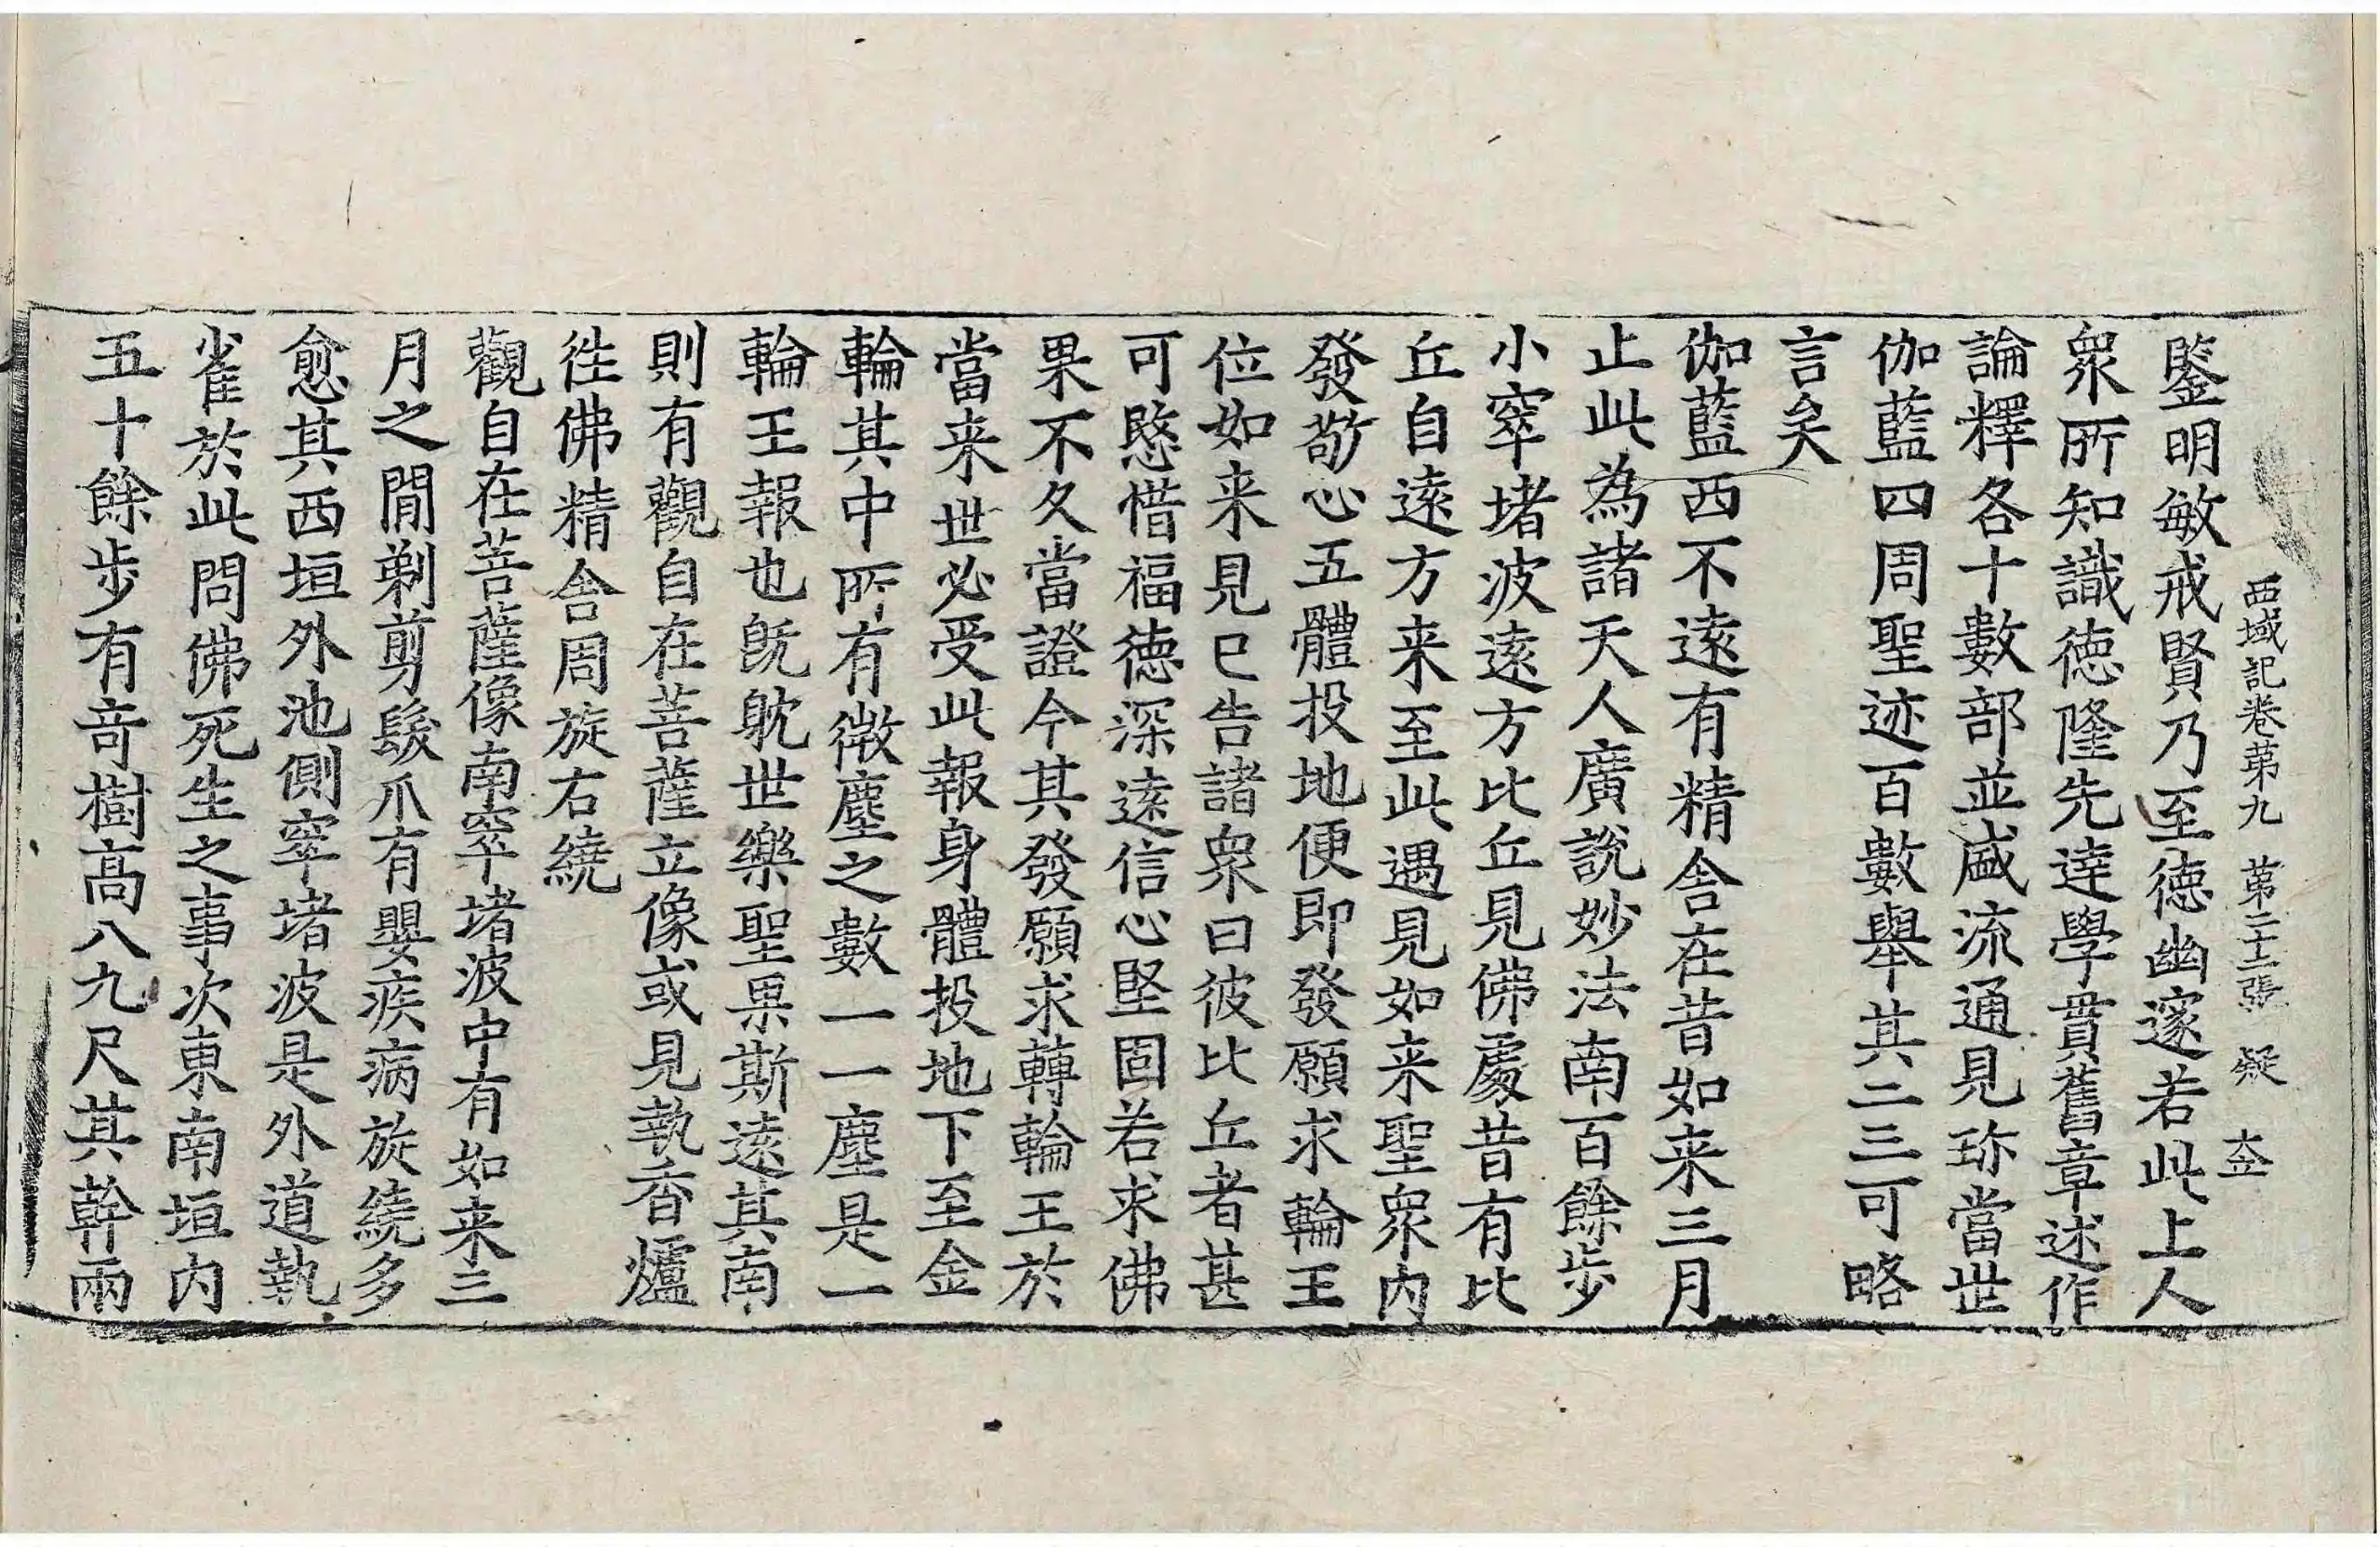 西域記卷第九 第二十二張 疑 
鑒明敏戒賢乃至德幽邃若此上人
衆所知識德隆先達學貫舊章述作
論釋各十數部並盛流通見珎當世
伽藍四周聖迹百數舉其二三可略
言矣
伽藍西不遠有精舍在昔如来三月
止此為諸天人廣說妙法南百餘步
小窣堵波遠方比丘見佛處昔有比
丘自遠方来至此遇見如来聖衆内
發敬心五體投地便即發願求輪王
位如来見已告諸衆曰彼比丘者甚
可愍惜福德深遠信心堅固若求佛
果不久當證今其發願求轉輪王於
當来世必受此報身體投地下至金
輪其中所有微塵之數一一塵是一
輪王報也既躭世樂聖果斯遠其南
則有觀自在菩薩立像或見執香爐
徃佛精舍周旋右繞
觀自在菩薩像南窣堵波中有如来三
月之間剃剪髮爪有嬰疾病旋繞多
愈其西垣外池側窣堵波是外道執
雀於此問佛死生之事次東南垣内
五十餘步有竒樹高八九尺其幹兩